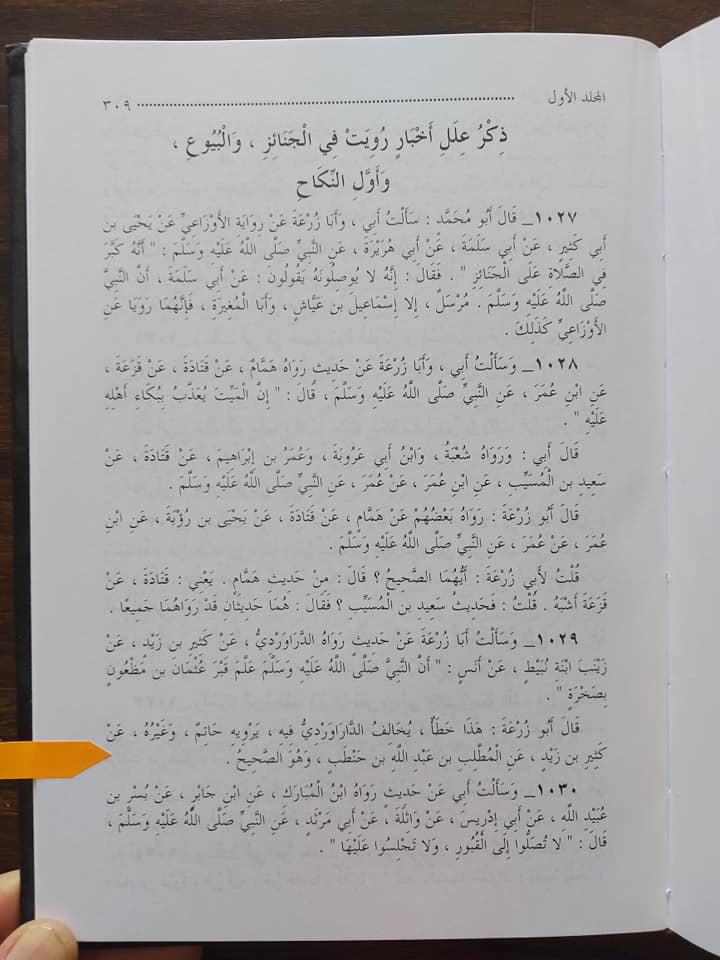 المجلد الأول ........................................................... ٣٠٩
ذِكْرُ عِلَلِ أَخْبَارٍ رُوِيَتْ فِي الْجَنَائِزِ ، وَالْبُيُوعِ ،
وَأَوَّلِ النِّكَاحِ
١٠٢٧_ قَالَ أَبُو مُحَمَّد : سَأَلْتُ أبي ، وَأَبَا زُرْعَةَ عَنْ رِوَايَةِ الأَوْزَاعِيِّ عَنْ يَحْيَى بن
أبي كَثِيرٍ ، عَنْ أبي سَلَمَةَ ، عَنْ أبي هُرَيْرَةَ ، عَنِ النبيِّ صَلَّى اللهُ عَلَيْهِ وَسَلَّمَ : " أَنَّهُ كَبَّرَ
فِي الصَّلاةِ عَلَى الْجَنَائِزِ " . فَقَالَ : إِنَّهُ لا يُوصِلُونَهُ يَقُولُونَ : عَنْ أبي سَلَمَةَ ، أَنَّ النبيَّ
صَلَّى اللهُ عَلَيْهِ وَسَلَّمَ . مُرْسَلٌ ، إِلا إِسْمَاعِيلَ بن عَيَّاشٍ ، وَأَبَا الْمُغِيرَةِ ، فَإِنَّهُمَا رَوَيَا عَنِ
الأَوْزَاعِيِّ كَذَلِكَ .
١٠٢٨_ وَسَأَلْتُ أبي ، وَأَبَا زُرْعَةَ عَنْ حَدِيثٍ رَوَاهُ هَمَّامٌ ، عَنْ قَتَادَةَ ، عَنْ قَزَعَةَ ،
عَنِ ابْنِ عُمَرَ ، عَنِ النبيِّ صَلَّى اللهُ عَلَيْهِ وَسَلَّمَ ، قَالَ : " إِنَّ الْمَيِّتَ يُعَذَّبُ بِبُكَاءِ أَهْلِهِ
عَلَيْهِ " .
قَالَ أبي : وَرَوَاهُ شُعْبَةُ ، وَابْنُ أبي عَرُوبَةَ ، وَعُمَرُ بن إِبْرَاهِيمَ ، عَنْ قَتَادَةَ ، عَنْ
سَعِيدِ بن الْمُسَيِّبِ ، عَنِ ابْنِ عُمَرَ ، عَنْ عُمَرَ ، عَنِ النبيِّ صَلَّى اللهُ عَلَيْهِ وَسَلَّمَ .
قَالَ أَبُو زُرْعَةَ : رَوَاهُ بَعْضُهُمْ عَنْ هَمَّامٍ ، عَنْ قَتَادَةَ ، عَنْ يَحْيَى بن رُؤْبَةَ ، عَنِ ابْنِ
عُمَرَ ، عَنْ عُمَرَ ، عَنِ النبيِّ صَلَّى اللهُ عَلَيْهِ وَسَلَّمَ .
قُلْتُ لأَبِي زُرْعَةَ : أَيُّهُمَا الصَّحِيحُ ؟ قَالَ : مِنْ حَدِيثِ هَمَّامٍ . يَعْنِي : قَتَادَةَ ، عَنْ
قَزَعَةَ أَشْبَهُ . قُلْتُ : فَحَدِيثُ سَعِيدِ بن الْمُسَيِّبِ ؟ فَقَالَ : هُمَا حَدِيثَانِ قَدْ رَوَاهُمَا جَمِيعًا .
١٠٢٩_ وَسَأَلْتُ أَبَا زُرْعَةَ عَنْ حَدِيثٍ رَوَاهُ الدَّرَاوَرْدِيُّ ، عَنْ كَثِيرِ بن زَيْدٍ ، عَنْ
زَيْنَبَ ابْنَةِ نُبَيْطٍ ، عَنْ أَنَسٍ : " أَنَّ النبيَّ صَلَّى اللهُ عَلَيْهِ وَسَلَّمَ عَلَّمَ قَبْرَ عُثْمَانَ بن مَظْعُونٍ
بِصَخْرَةٍ " .
قَالَ أَبُو زُرْعَةَ : هَذَا خَطَأٌ ، يُخَالِفُ الدَّارَاوَرْدِيَّ فيه ، يَرْوِيهِ حَاتِمٌ ، وَغَيْرُهُ ، عَنْ
كَثِيرِ بن زَيْدٍ ، عَنِ الْمُطَّلِبِ بن عَبْدِ اللهِ بن حَنْطَبٍ ، وَهُوَ الصَّحِيحُ .
١٠٣٠_ وَسَأَلْتُ أبي عَنْ حَدِيثٍ رَوَاهُ ابْنُ الْمُبَارَكِ ، عَنِ ابْنِ جَابِرٍ ، عَنْ بُسْرِ بن
عُبَيْدِ اللهِ ، عَنْ أبي إِدْرِيسَ ، عَنْ وَاثِلَةَ ، عَنْ أبي مَرْثَدٍ ، عَنِ النبيِّ صَلَّى اللهُ عَلَيْهِ وَسَلَّمَ ،
قَالَ : " لا تُصَلُّوا إِلَى الْقُبُورِ ، وَلا تَجْلِسُوا عَلَيْهَا " .